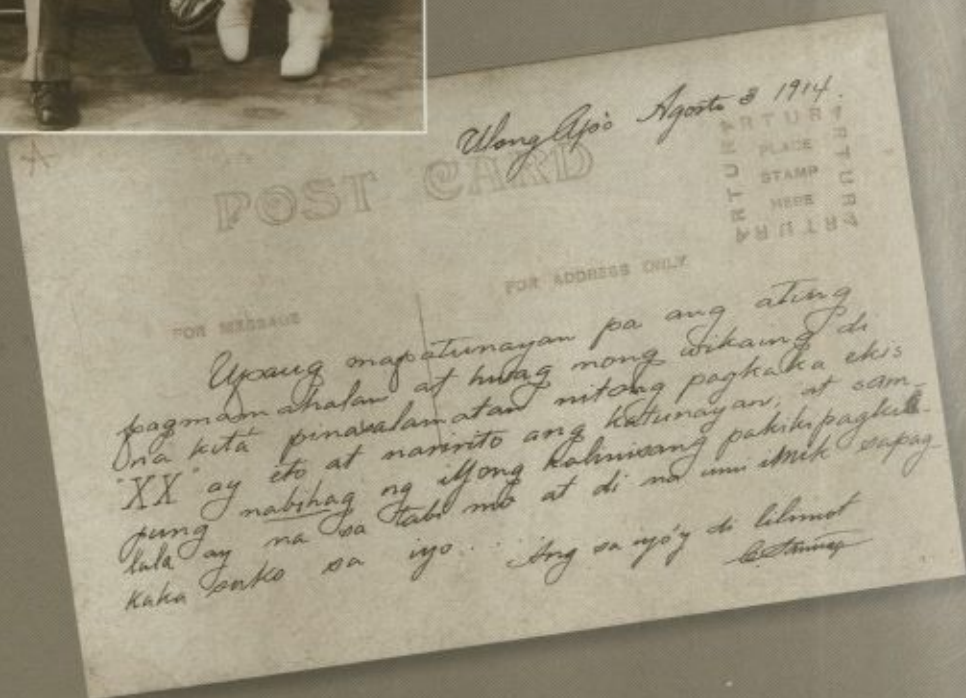 Ulong Apo Agosto 3 1914.
POST CARD
ARTURA
ARTURA
ARTURA
ARTURA
PLACE
STAMP
HERE
FOR MESSAGE
FOR ADDRESS ONLY
Upang mapatunayan pa ang ating
pagmamahalan at huag mong wikaing di
na kita pinasalamatan nitong pagkaka ekis
"XX" ay eto at naririto ang katunayan, at sam-
pung nabihag ng iyong kalinisang pakikipagkik-
lala ay na sa tabi mo at di na umi imik sapag
kaka suko sa iyo... Ang sa iyo'y di lilimot